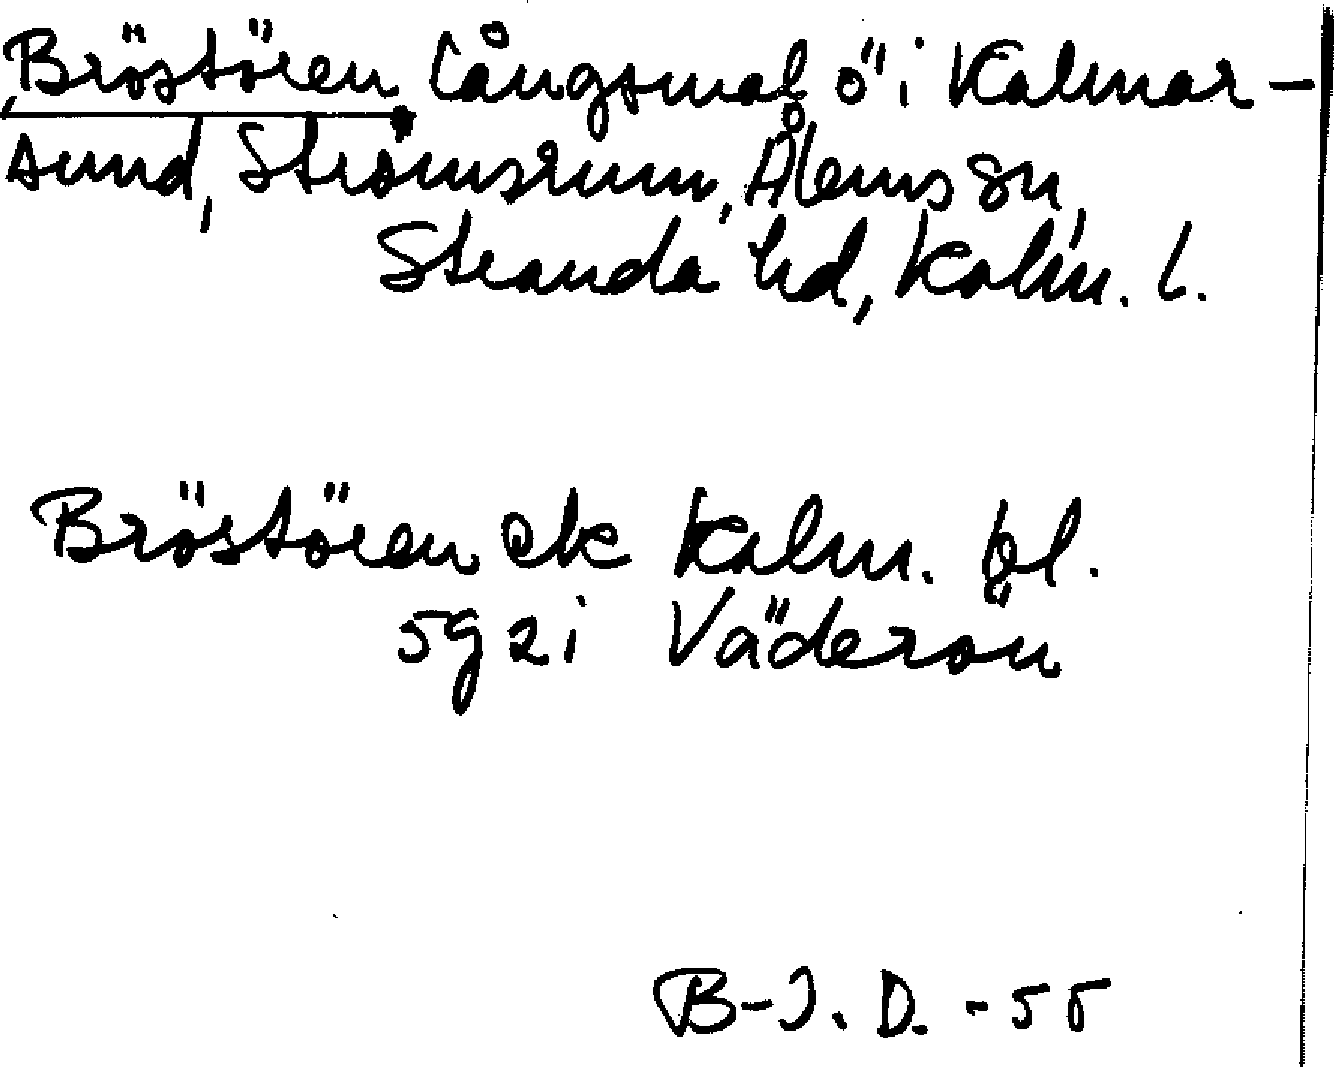 Bröstören, långsmal ö i Kalmar-
sund, Strömsrum, Ålems sn,
Stranda hd, Kalm. l.
Bröstören ek Kalm. bl.
5g2i Väderön
B-J. D. -55